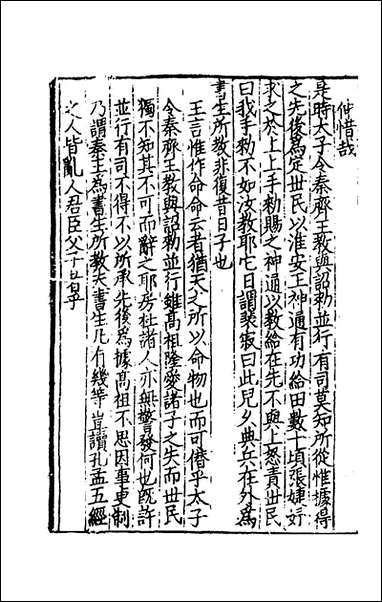 仲惜哉
是時太子令秦齊王教與詔勑並行有司莫知所從惟據得
之先後為定世民以淮安王神通有功給田數十頃張婕妤
求之於上上手勑賜之神通以教給在先不與上怒責世民
曰我手勑不如汝教耶它日謂裴寂曰此兒久典兵在外為
書生所教非復昔日子也
王言惟作命命云者猶天之所以命物也而可僭乎太子
令秦齊王教與詔勑並行雖髙祖隆愛諸子之失而世民
獨不知其不可而辭之耶房杜諸人亦與警發何也既許
並行有司不得不以所承先後為據髙祖不思因事更制
乃謂秦王為書生所教夫書生凡有幾等豈讀孔孟五經
之人皆亂人君臣父子者乎